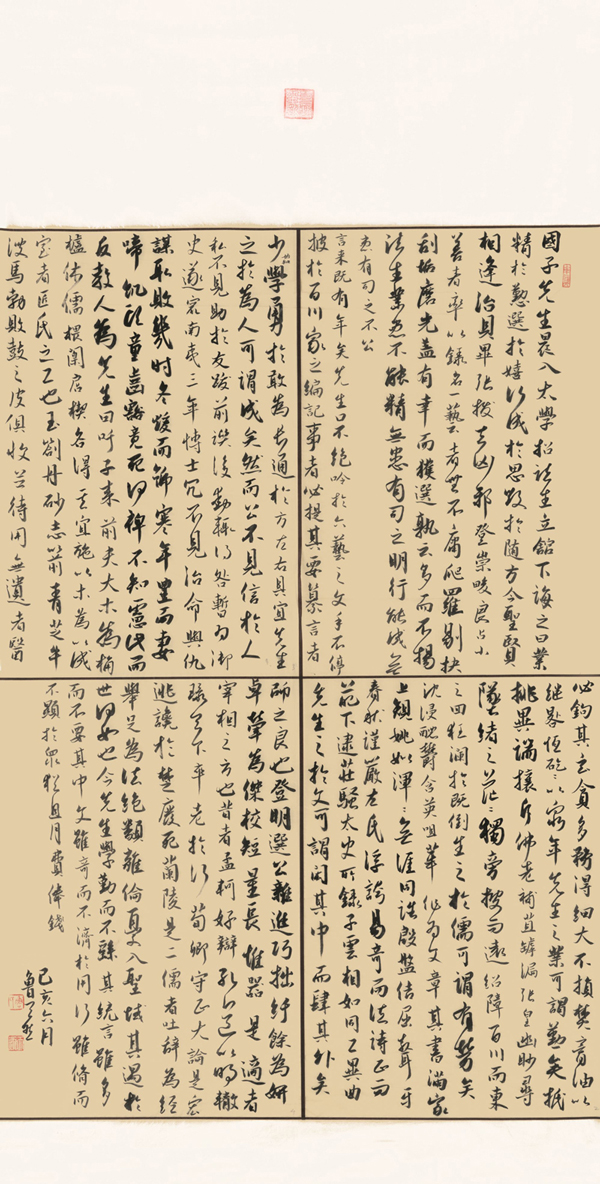 國子先生晨入太學招諸生立館下誨之曰業
精於懃荒於嬉行成於思毀於隨方今聖賢
相逢治具畢張拔去凶邪登崇畯良占小
善者率以錄名一藝云者無不庸爬羅剔抉
刮垢磨光蓋有幸而獲選孰云多而不揚
諸生業患不能精無患有司之明行能成無
患有司之不公
言未既有年矣先生口不絕吟於六藝之文手不停
披於百川家之編記事者必提其要纂言者
必鉤其玄貪多務得細大不捐焚膏油以
繼晷恆矻矻以窮年先生之業可謂勤矣抵
排異端攘斥佛老補苴罅漏張皇幽眇尋
墜緒之茫茫獨旁搜而遠紹障百川而東
之回狂瀾於既倒生之於儒可謂有勞矣
沈浸醲鬱含英咀華作為文章其書滿家
上規姚姒渾渾無涯周誥殷盤佶屈聱牙
春秋謹嚴左氏浮誇易奇而法詩正而
葩下逮莊騷太史所錄子雲相如同工異曲
先生之於文可謂閎其中而肆其外矣
少始學勇於敢為長通於方左右具宜先生
之於為人可謂成矣然而公不見信於人
私不見助於友跋前躓後動輒得咎暫為御
史遂竄南夷三年博士冗不見治命與仇
謀取敗幾時冬煖而號寒年豐而妻
啼飢頭童齒豁竟死何裨不知慮此而
反教人為先生曰吁子來前夫大木為桷
櫨侏儒椳闑扂楔各得其宜施以木為以成
室者匠氏之工也玉劄丹砂赤箭青芝牛
溲馬勃敗鼓之皮俱收並待用無遺者醫
師之良也登明選公雜進巧拙紆餘為妍
卓犖為傑校短量長惟器是適者
宰相之方也昔者孟軻好辯孔道以明轍
環天下卒老於行荀卿守正大論是宏
逃讒於楚廢死蘭陵是二儒者吐辭為經
舉足為法絕類離倫優入聖域其遇於
世何如也今先生學勤而不繇其統言雖多
而不要其中文雖奇而不濟於用行雖脩而
不顯於眾猶且月費俸錢
己亥六月